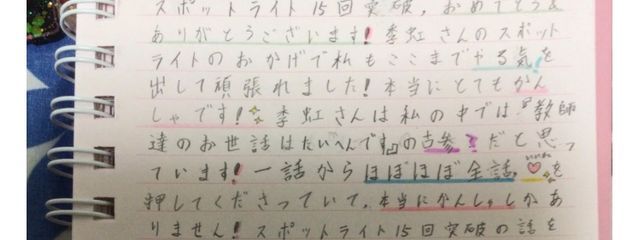 スポットライト15回突破,おめでとう&
ありがとうございます!季虹さんのスポット
ライトのおかげで私もここまでやる気を
出して頑張れました!本当にとてもかん
しゃです!季虹さんは私の中では『教師
達のお世話はたいへんです』の古参?だと思っ
ています!一話からほぼほぼ全話,いいねを
押してくださっていて,本当にかんしゃしかあ
りません!スポットライト15回突破の話を